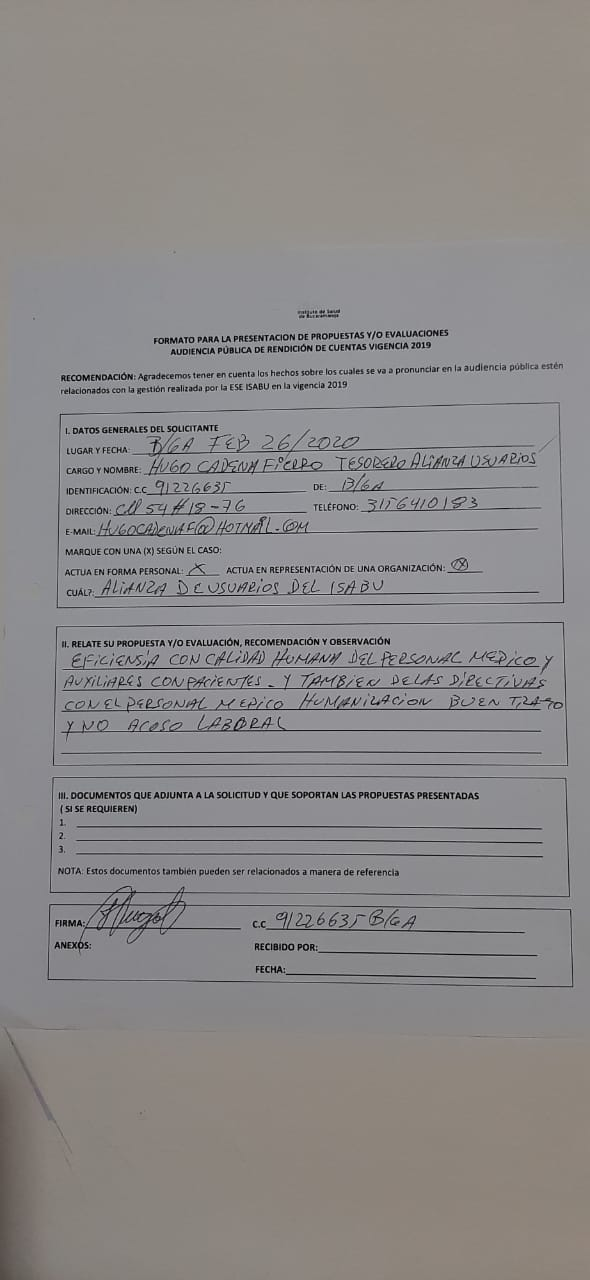 Instituto de Salud
de Bucaramanga
FORMATO PARA LA PRESENTACION DE PROPUESTAS Y/O EVALUACIONES
AUDIENCIA PÚBLICA DE RENDICIÓN DE CUENTAS VIGENCIA 2019
RECOMENDACIÓN: Agradecemos tener en cuenta los hechos sobre los cuales se va a pronunciar en la audiencia pública estén
relacionados con la gestión realizada por la ESE ISABU en la vigencia 2019
I. DATOS GENERALES DEL SOLICITANTE
LUGAR Y FECHA: B/GA FEB 26/2020
CARGO Y NOMBRE: HUGO CADENA FIERRO TESORERO ALIANZA USUARIOS
IDENTIFICACIÓN: C.C 91226635 DE: B/GA
DIRECCIÓN: Cll 54 # 18-76 TELÉFONO: 3156410183
E-MAIL: HUGOCADENAF@HOTMAIL.COM
MARQUE CON UNA (X) SEGÚN EL CASO:
ACTUA EN FORMA PERSONAL: X ACTUA EN REPRESENTACIÓN DE UNA ORGANIZACIÓN: X
CUÁL?: ALIANZA DE USUARIOS DEL ISABU
II. RELATE SU PROPUESTA Y/O EVALUACIÓN, RECOMENDACIÓN Y OBSERVACIÓN
EFICIENSIA CON CALIDAD HUMANA DEL PERSONAL MEDICO Y
AUXILIARES CON PACIENTES - Y TAMBIEN DE LAS DIRECTIVAS
CON EL PERSONAL MEDICO HUMANIZACION BUEN TRATO
Y NO ACOSO LABORAL
III. DOCUMENTOS QUE ADJUNTA A LA SOLICITUD Y QUE SOPORTAN LAS PROPUESTAS PRESENTADAS
( SI SE REQUIEREN)
1.
2.
3.
NOTA: Estos documentos también pueden ser relacionados a manera de referencia
FIRMA: C.C 91226635 B/GA
ANEXOS: RECIBIDO POR:
FECHA: